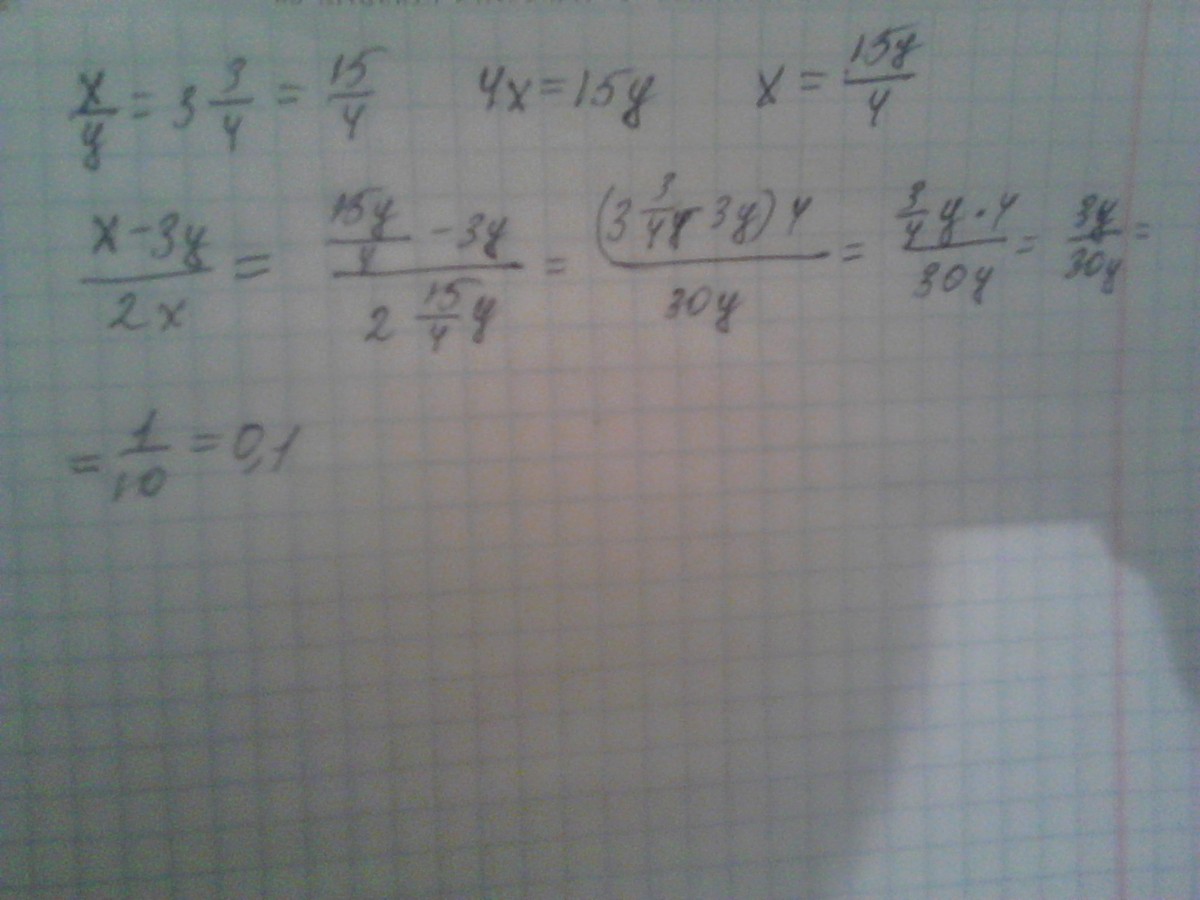 x/y = 3 3/4 = 15/4 4x = 15y x = 15y/4
(x - 3y)/(2x) = (15y/4 - 3y)/(2 15/4 y) = ((3 3/4 y - 3y) 4)/(30y) = (3/4 y · 4)/(30y) = 3y/30y =
= 1/10 = 0,1